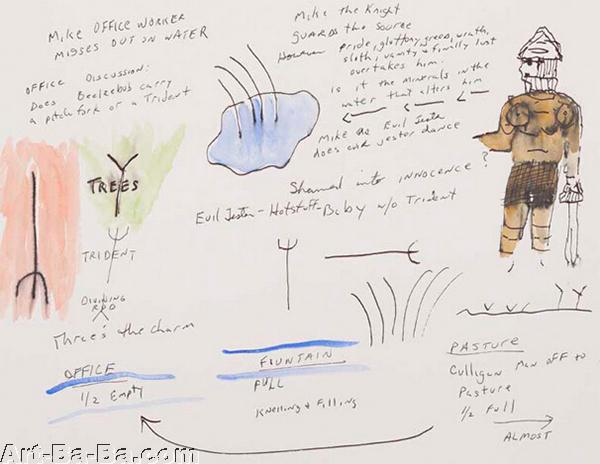 MIKE OFFICE WORKER
MISSES OUT ON WATER
OFFICE DISCUSSION:
Does Beelzebub carry
a pitchfork or a Trident
TREES
TRIDENT
DIVINING
ROD
Three's the charm
OFFICE
1/2 Empty
Mike the Knight
guards the source
However pride, gluttony, greed, wrath,
sloth, vanity & finally lust
overtakes him.
is it the minerals in the
water that alters him
Mike as Evil Jester
does evil jester dance
Shamed into innocence?
Evil Jester - Hotstuff - Baby w/o Trident
FOUNTAIN
FULL
Knelling & Filling
PASTURE
Culligan Man off to
Pasture
1/2 full
ALMOST
Art-Ba-Ba.com